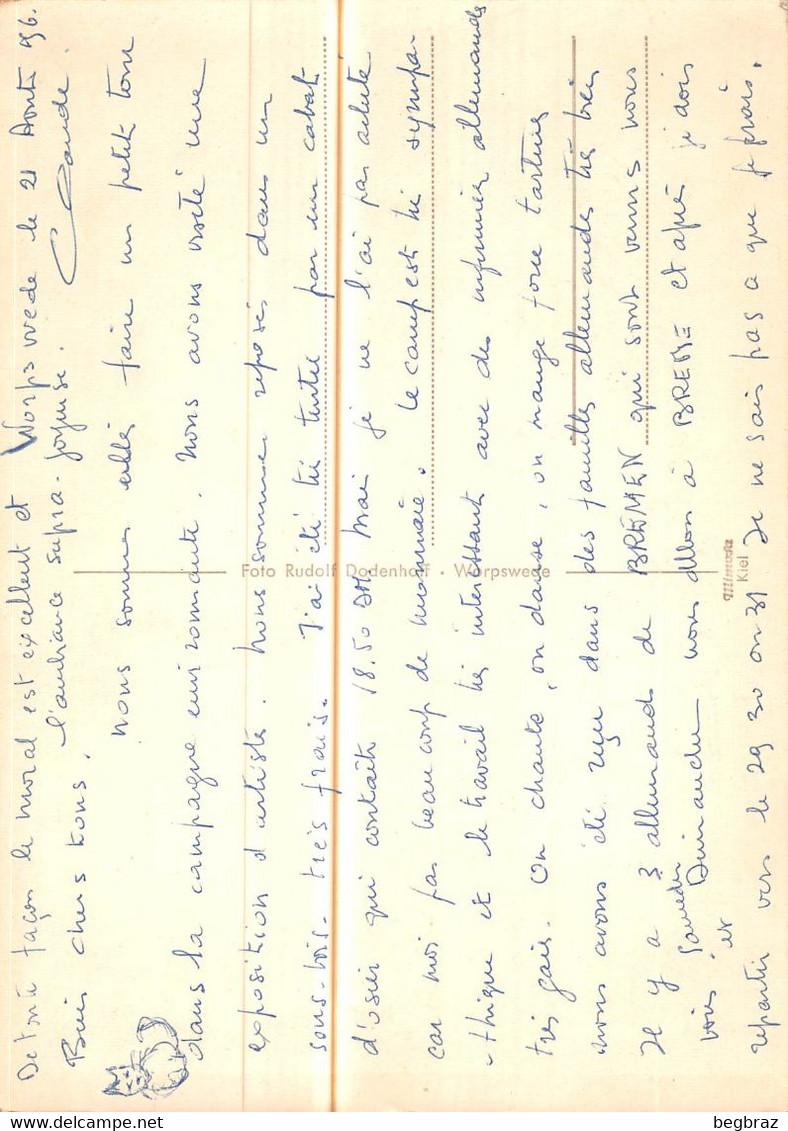 Worpswede le 21 Août 56.
Bien chers tous,
nous sommes allés faire un petit tour
dans la campagne environnante. Nous avons visité une
exposition d'artiste. Nous sommes reposés dans un
sous-bois très frais. J'ai été très tentée par un cabat
d'osier qui contait 18.50 DM. Mais je ne l'ai pas acheté
car moi pas beaucoup de monnaie. Le camp est très sympa-
-thique et le travail très interessant avec des infirmier allemands
très gais. On chante, on danse, on mange force tartines
nous avons été reçu dans des familles allemandes très bien
Il y a 3 allemands de BREMEN qui sont venus nous
voir Samedi et Dimanche nous allons à BREME et après je dois
repartir vers le 29 30 ou 31 Je ne sais pas a que je ferais.
De toute façon le moral est excellent et
l'ambiance supra-joyeuse.
Claude.
Foto Rudolf Dodenhoff • Worpswede
Kiel
begbraz